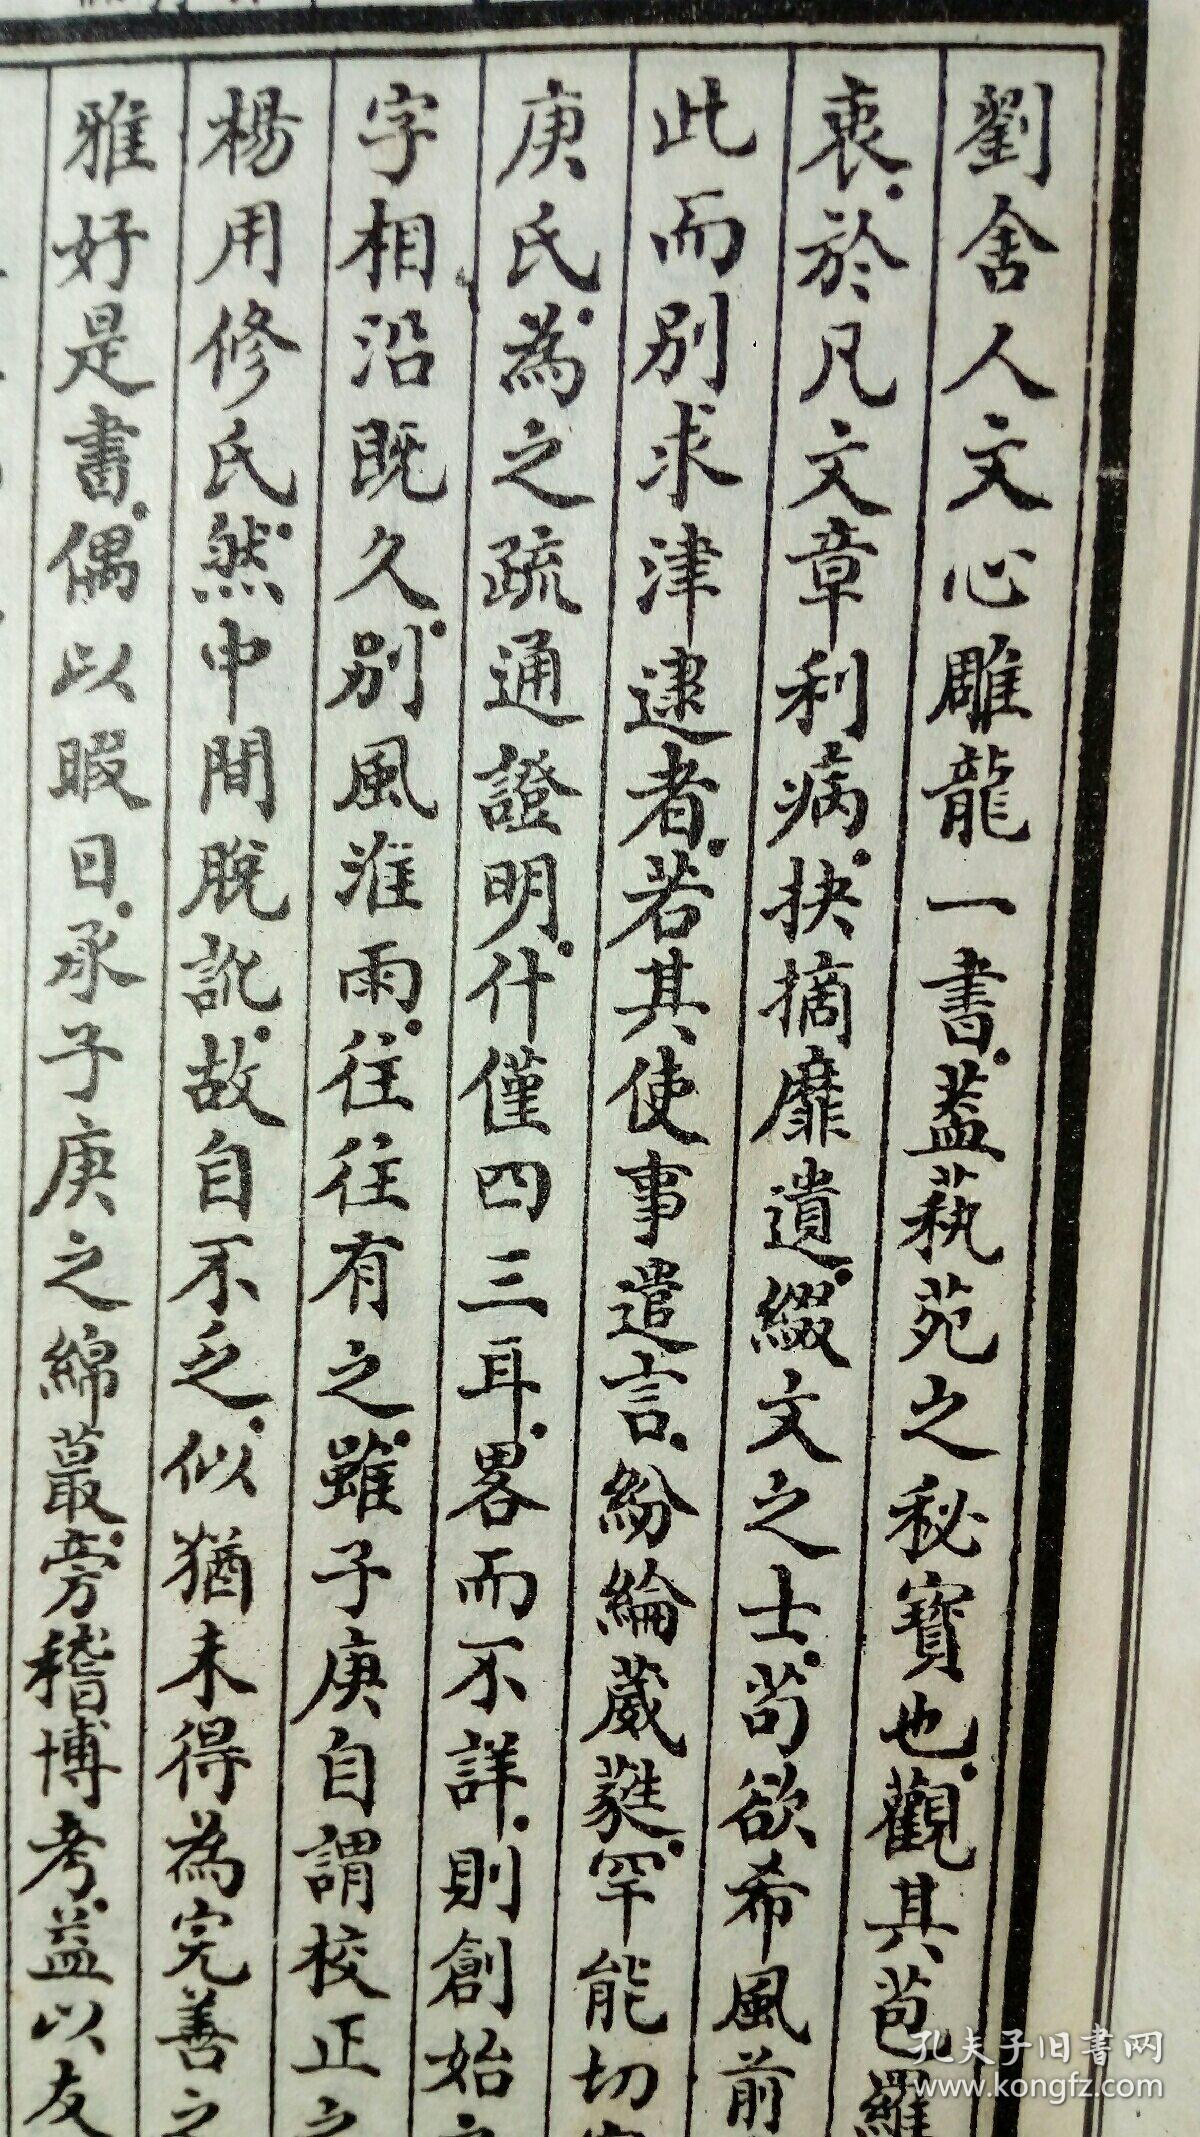 劉舍人文心雕龍一書蓋藝苑之秘寶也觀其苞羅
衷於凡文章利病抉摘靡遺綴文之士苟欲希風前
此而別求津逮者若其使事遣言紛綸葳蕤罕能切
庚氏為之疏通證明什僅四三耳畧而不詳則創始
字相沿既久別風淮雨往往有之雖子庚自謂校正之
楊用修氏然中間脫訛故自不乏似猶未得為完善之
雅好是書偶以暇日承子庚之綿蕞旁稽博考益以友
孔夫子旧书网
www.kongfz.com